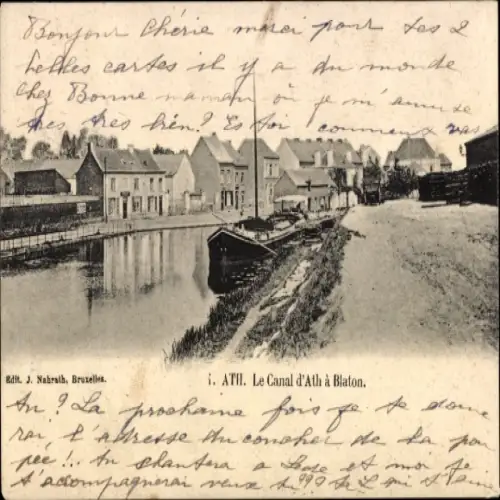 Bonjour Chérie merci pour tes 2
belles cartes il y a du monde
chez Bonne maman où je m'amuse
très très bien? Et toi comment vas
Edit. J. Nahrath, Bruxelles.
1. ATH. Le Canal d'Ath à Blaton.
tu? La prochaine fois je te donne
rai l'adresse du concher de la pou
pee!.. Tu chantera a et moi je
t'accompagnerai veux tu???